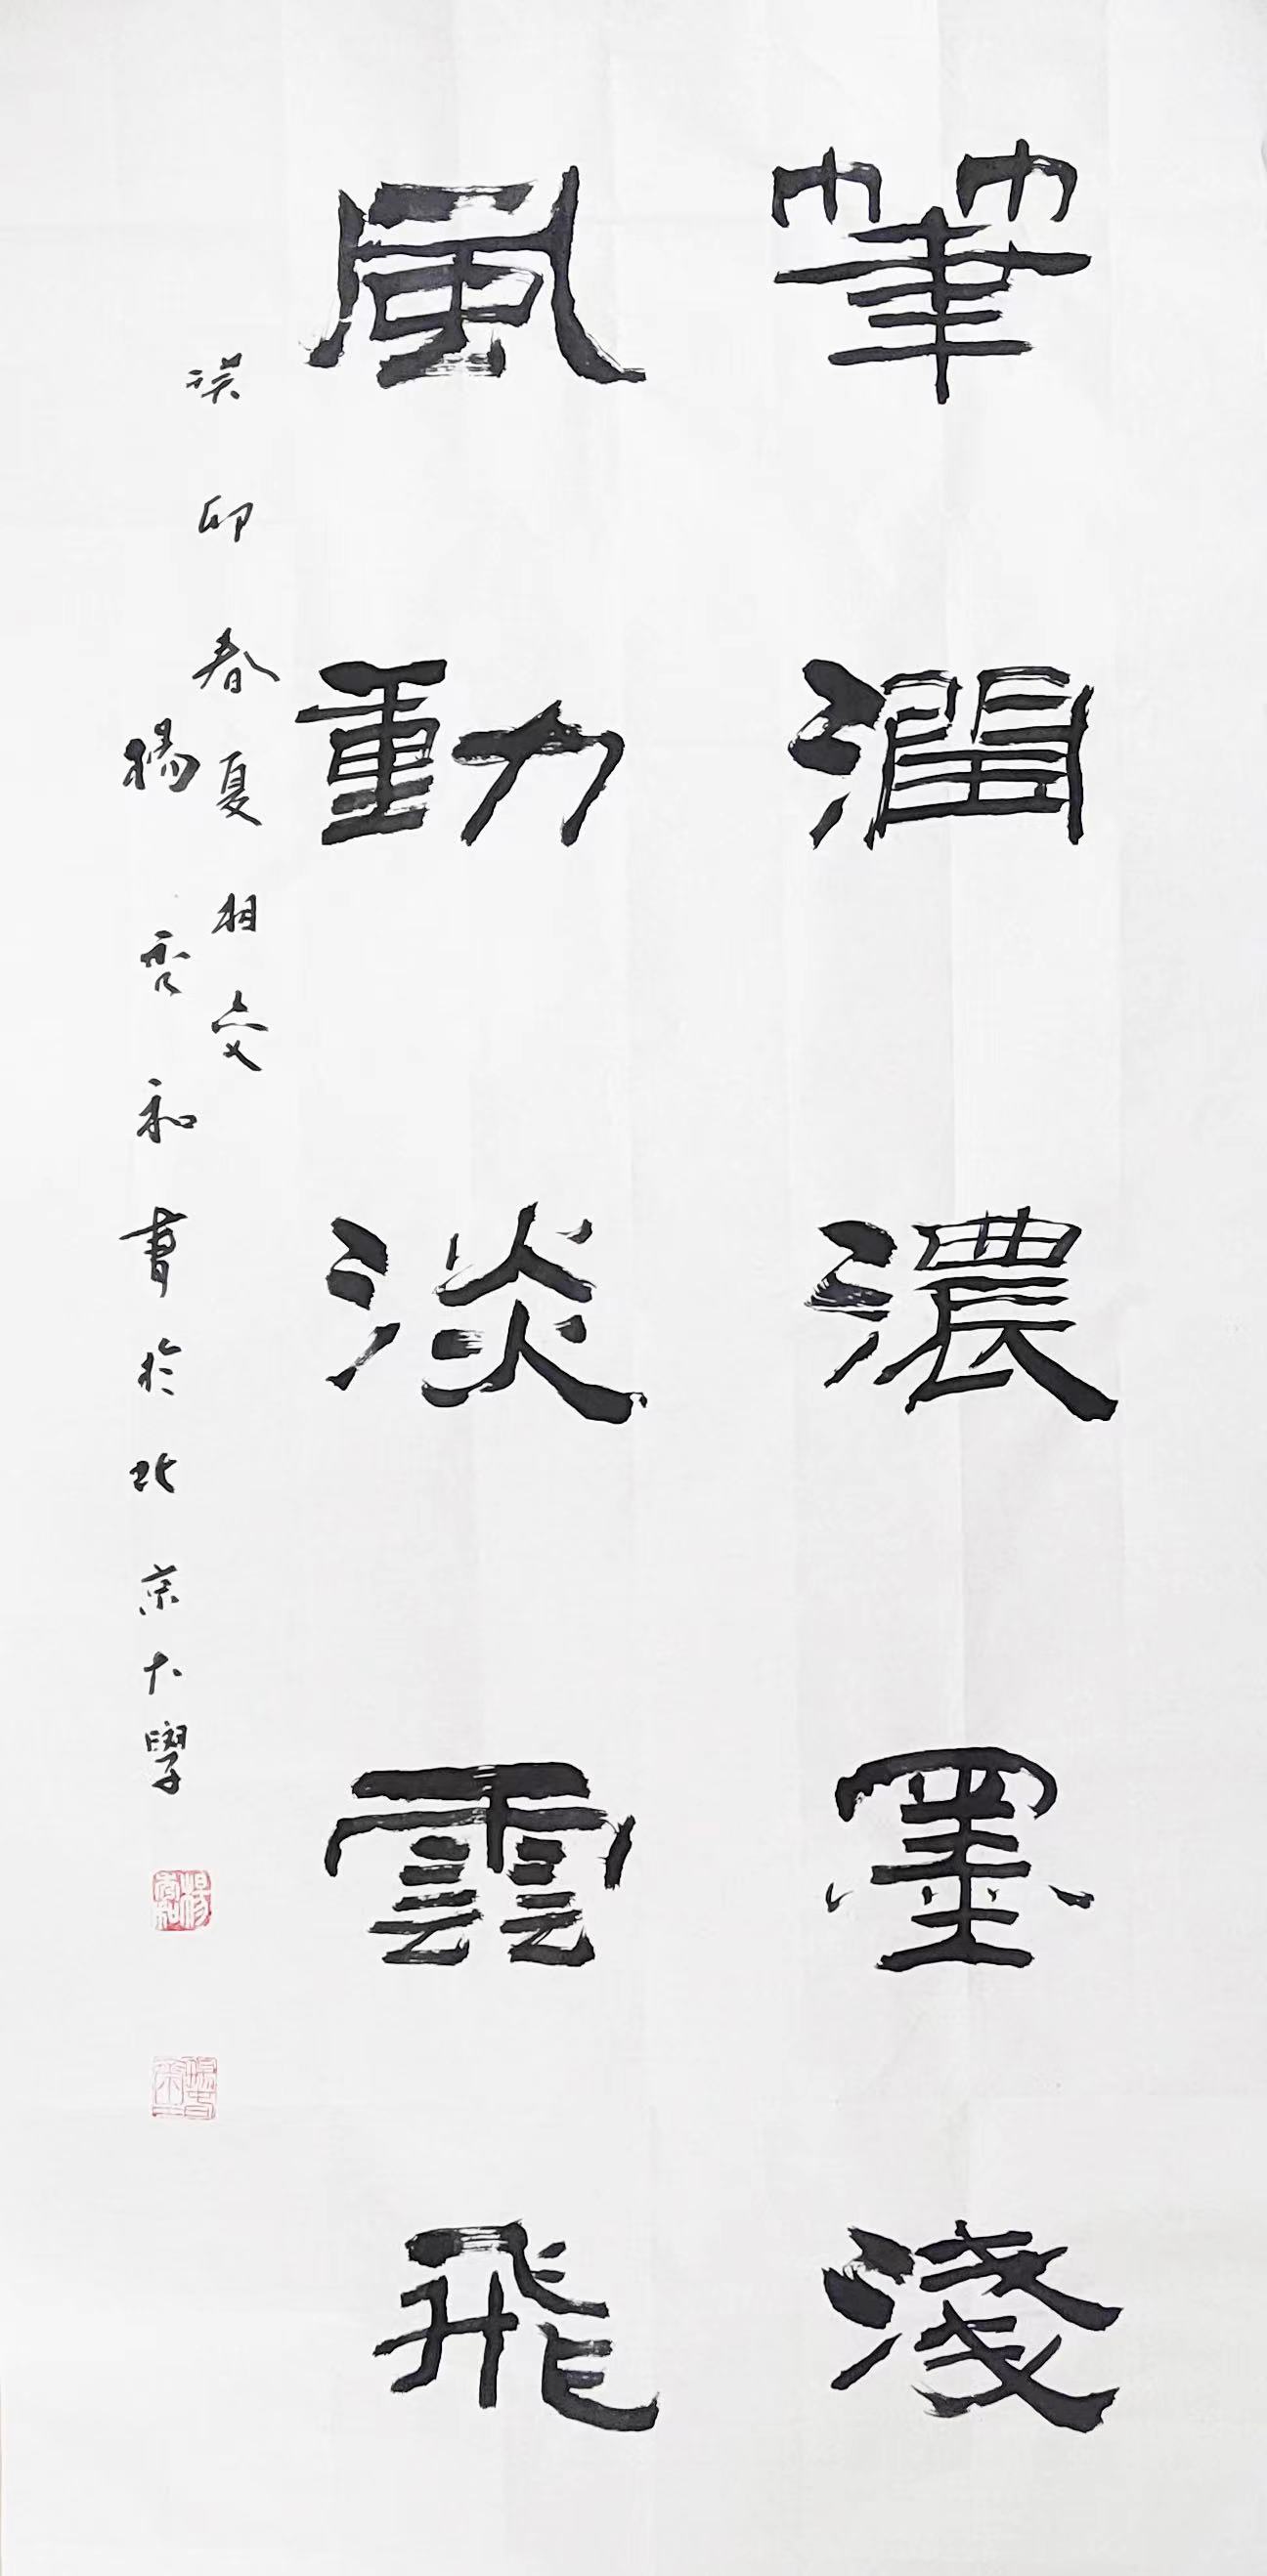 筆潤濃墨淺
風動淡雲飛
癸卯春夏相交
楊秀和書於北京大學
楊秀和